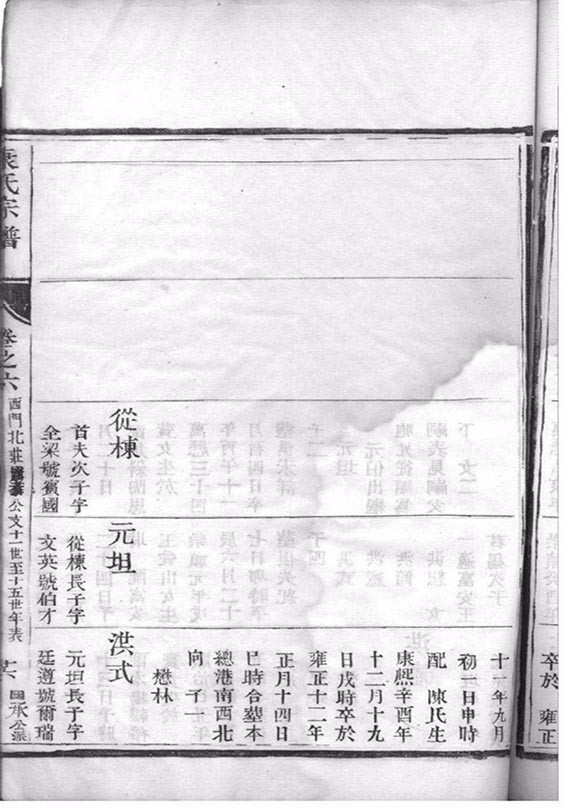 卒於 雍正
從棟
首夫次子字
仝梁號賓國
元坦
從棟長子字
文英號伯才
十一年九月
初一日申時
配 陳氏生
康熙辛酉年
十二月十九
日戌時卒於
雍正十二年
正月十四日
巳時合塟本
總港南西北
向 子一
懋林
洪式
元坦長子字
廷遵號爾瑞
氏宗譜
卷之六
西門北莊
公支十一世至十五世年表